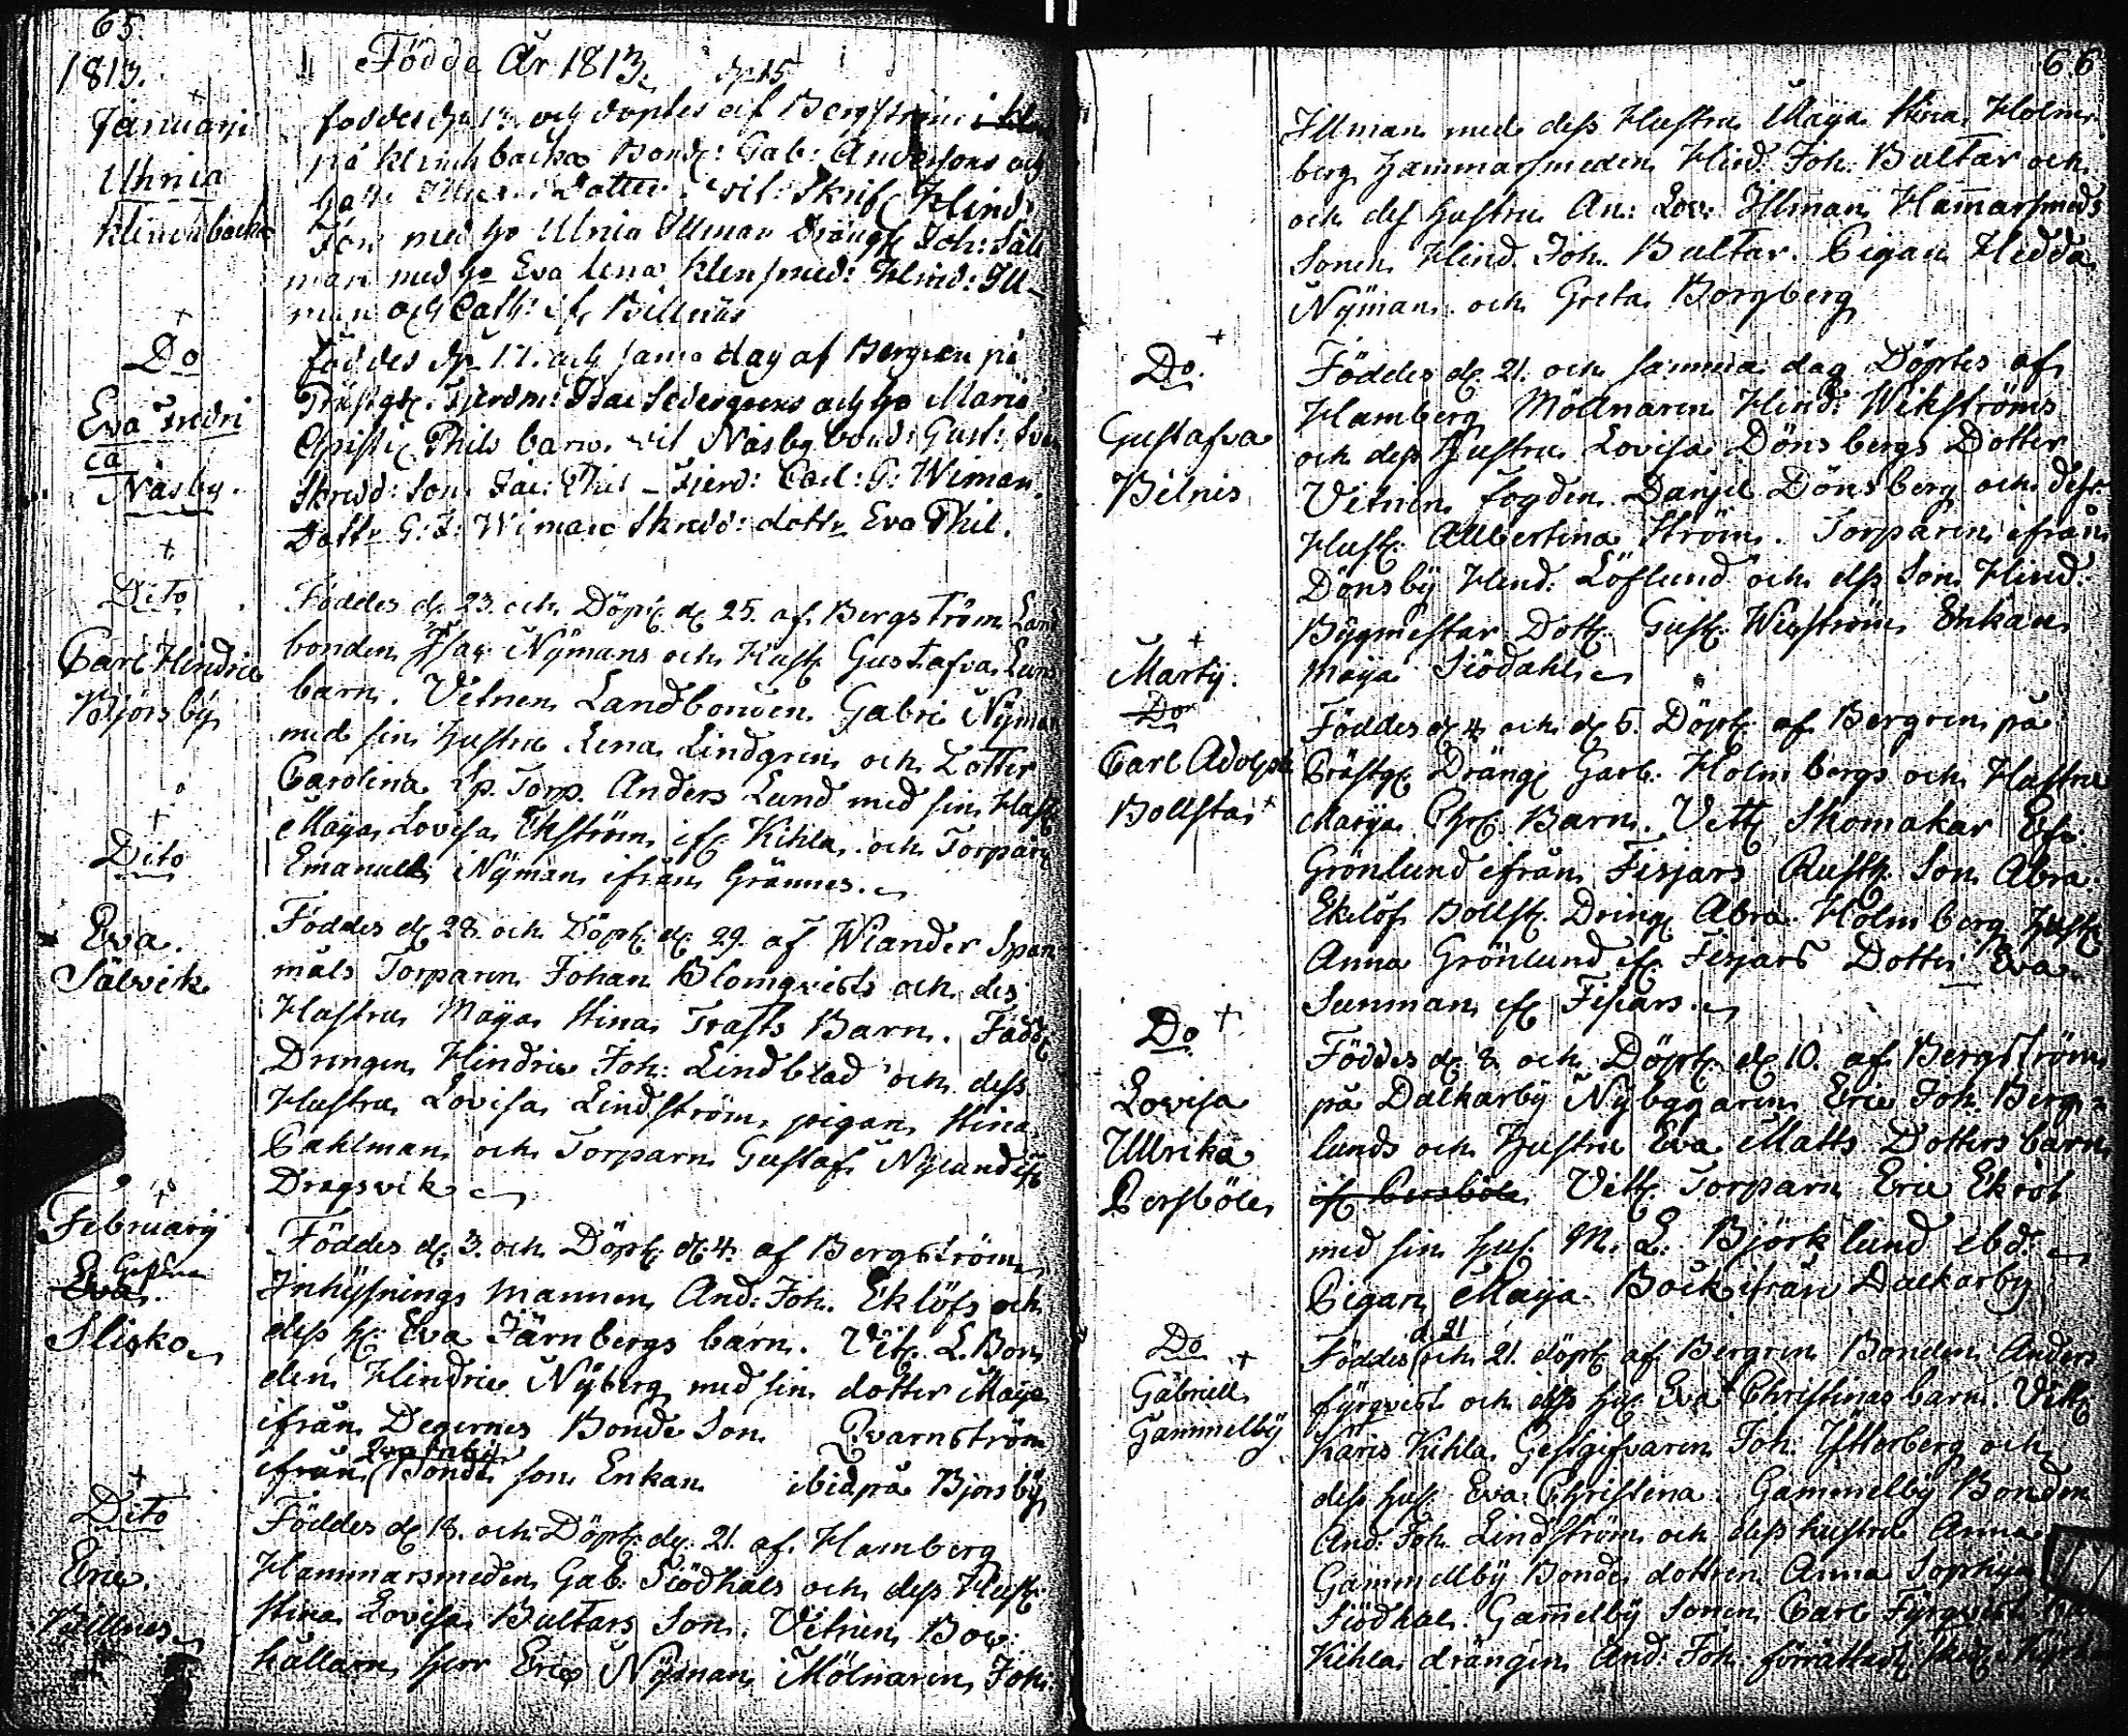 65.
1813.
Födde År 1813.
dn 15
Januarji
Ulnia
Klinckbacka
foddes dn 13. och doptes af Bergström
på Klinckbacka Bond: Gab: Andersons och
Dotter. vit: Skrif Hind:
Jon med ho Ulnia Illman Drängn Joh: Säll
man med ho Eva Lena Klensmed: Hind: Ill-
man och Cath: if Billnäs
Do
Eva Fredri
ca
Näsby.
föddes dn 17. och sama dag af Bergren på
Prästgn. Fjerdm: Isac Sedergrens och ho Maria
Phils barn. vit Näsby bond: Gust:
Skredd: Son Jac: Phil - Fjerd: Carl: G: Wiman.
Dottr G: J: Wiman Skredd: dottr Eva Phil.
Dito
Carl Hindric
Björsbÿ
Föddes d. 23. och Döpt d. 25. af Bergström Land
bonden Isac Nÿmans och Hust Gustafva Lunds
barn. Vitnen Landbonden Gabri Nÿman
med sin hustru Lena Lindgren och Dotter
Carolina Sp. Torp. Anders Lund med sin Hust
Maÿa Lovisa Ekström if Kihla och Torparn
Emanuels Nÿman ifrån Grännes.
Dito
Eva.
Sälvik
Föddes d. 28. och Döpt d. 29. af Wiander Span
måls Torparen Johan Blomqvists och des
Hustru Maÿa Stina Trasts Barn. Fadd
Drengen Hindric Joh: Lindblad och dess
Hustru Lovisa Lindström, pigan Stina
Dahlman och Torparn Gustaf Nÿlund if
Dragsvik
Februarÿ
Eva.
Slisko
Föddes d. 3. och Döpt d. 4. af Bergström
Inhÿsnings mannen And: Joh. Eklöfs och
dess h. Eva Järnbergs barn. Vit. L. Bon
den Hindric Nÿberg med sin dotter Maÿa
ifrån Degernes Bonde Son Qvarnström
ifrån Bonde son Enkan ibid på Bjorsbÿ
Dito
Eric.
Billnes
Föddes d. 18. och Döpt d. 21. af Hamberg
Hammarsmeden Gab. Siödhals och dess Hust.
Stina Lovisa Bultars Son. Vitnen Bok
hållarn herr Eric Nÿman Mölnaren Joh:
66
Illman med dess Hustru Maÿa Stina Holm
berg Hammarsmeden Hind. Joh. Bultar och
och dess hustru An: Lov: Illman Hammarsmeds
Sonen Hind. Joh. Bultar. Pigan Hedda
Nÿman och Greta Borgberg
Do.
Gustafva
Bilnis
Föddes d. 21. och samma dag Döptes af
Hamberg Möllnaren Hind: Wikströms
och dess Hustru Lovisa Dönsbergs Dotter
Vitnen fogden Danjel Dönsberg och dess
Hust. Albertina Ström. Torparen ifrån
Dönsbÿ Hind. Löflund och dess Son Hind.
Bÿgmestar Dott. Gust. Wigström Enkan
Maÿa Siödahl
Martÿ.
Do
Carl Adolph
Bollsta
Föddes d. 4 och d. 5. Döpt af Bergren på
Prästg. Dräng Garb. Holmbergs och Hustru
Maÿa Barn. Vitt Skomakar Efr.
Grönlund ifrån Fisjars Rust. Son Abra.
Eklöf Bollst. Dreng Abra. Holmberg hust
Anna Grönlund if Fisjars Dotter Eva
Sunman if Fisjars.
Do
Lovisa
Ullrika
Persböle
Föddes d. 8. och Döpt d. 10. af Bergström
på Dalkarbÿ Nÿbÿgarin Eric Joh. Berg-
lunds och Hustru Eva Matts Dotters barn
if Persböle Vitt. Torparn Eric Ekrot
med sin hus. M. L. Björklund ibd.
Pigan Maÿa Bock ifrån Dalkarbÿ
Do
Gäbriell
Gammelbÿ
d. 21
Föddes och 21. döpt af Bergren Bonden Anders
fÿrqvist och dess hus. Eva Christinas barn. Vitt
Karis Kihla Gestgifvaren Joh. Ÿtterberg och
dess hus. Eva Christina. Gammelbÿ Bonden
And. Joh. Lindström och dess hustru Anna
Gammelbÿ Bonde dottren Anna Sophiÿa
Siödhal. Gammelbÿ Sonen Carl Fÿrqvist
Kihla drängen And. Joh.